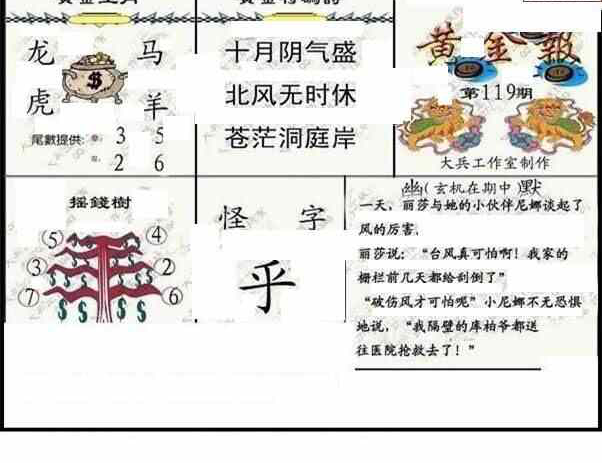 龙 马
虎 羊
$
尾數提供: 3 5
2 6
十月阴气盛
北风无时休
苍茫洞庭岸
黄金報
第119期
大兵工作室制作
摇錢樹
⑤ ④
③ ②
⑦ ⑥
$ $ $ $ $
怪 字
乎
幽(玄机在期中 默
一天，丽莎与她的小伙伴尼娜谈起了
风的厉害，
丽莎说：“台风真可怕啊！我家的
栅栏前几天都给刮倒了”
“破伤风才可怕呢”小尼娜不无恐惧
地说，“我隔壁的库柏爷都送
往医院抢救去了！”